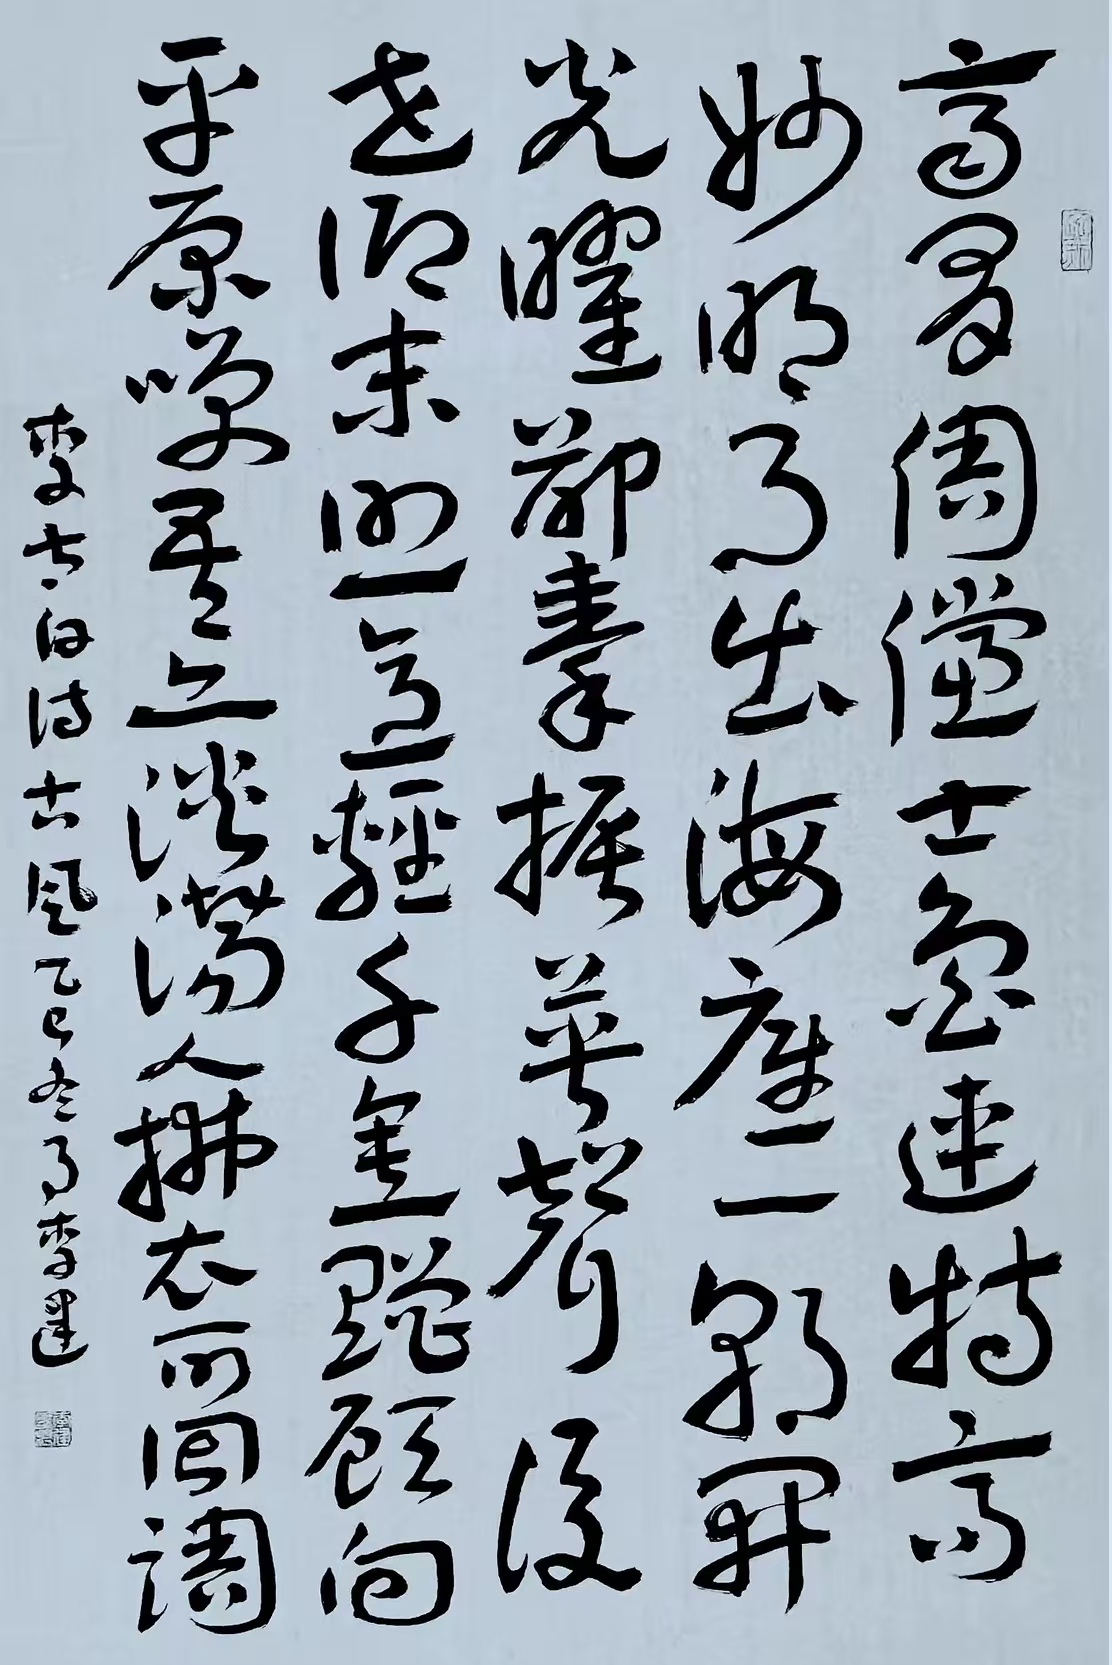 齊有倜儻士魯連特高
妙明月出海底一朝開
光曜卻秦振英聲後
世仰末照意輕千金贈顧向
平原笑吾亦澹蕩人拂衣可同調
李太白詩古風乙巳冬月李建